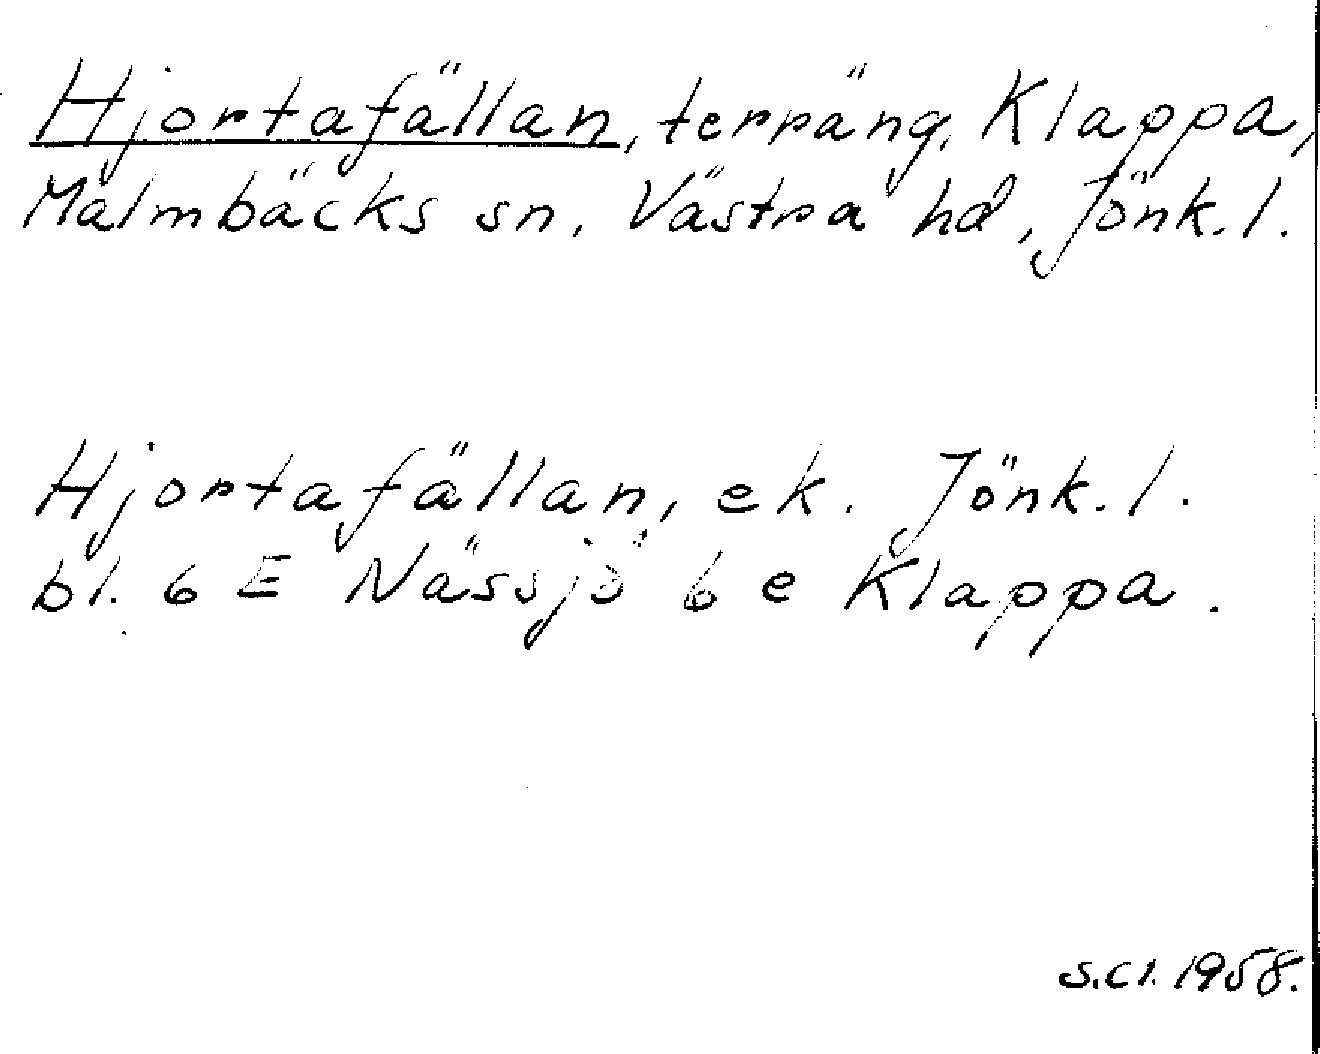 Hjortafällan, terräng, Klappa,
Malmbäcks sn, Västra hd, Jönk. l.
Hjortafällan, ek. Jönk. l.
bl. 6 E Nässjö 6 e Klappa.
S.Cl. 1958.